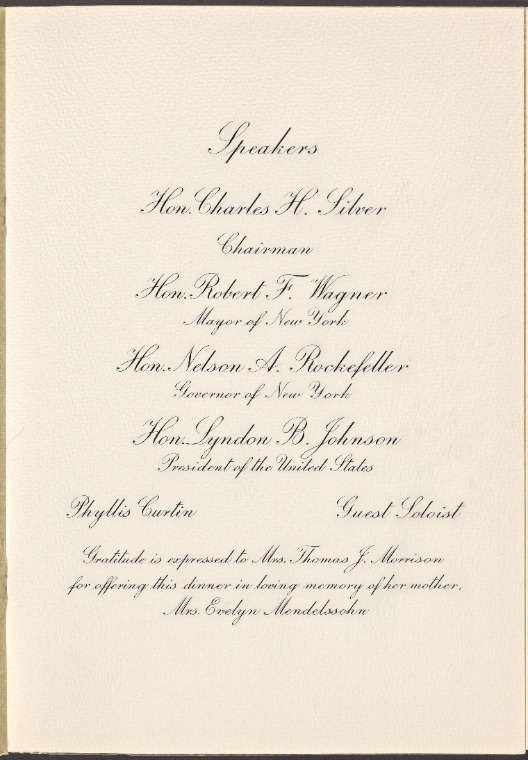 Speakers
Hon. Charles H. Silver
Chairman
Hon. Robert F. Wagner
Mayor of New York
Hon. Nelson A. Rockefeller
Governor of New York
Hon. Lyndon B. Johnson
President of the United States
Phyllis Curtin Guest Soloist
Gratitude is expressed to Mrs. Thomas J. Morrison
for offering this dinner in loving memory of her mother,
Mrs. Evelyn Mendelssohn